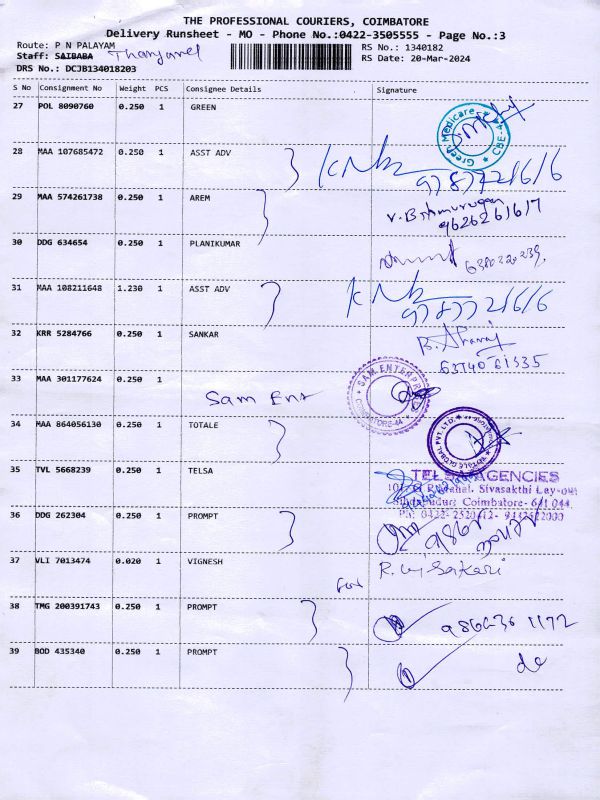 THE PROFESSIONAL COURIERS, COIMBATORE
Delivery Runsheet - MO - Phone No.:0422-3505555 - Page No.:3
Route: P N PALAYAM
RS No.: 1340182
Staff: SAIBABA
RS Date: 20-Mar-2024
DRS No.: DCJB134018203
S No Consignment No Weight PCS Consignee Details Signature
27 POL 8090760 0.250 1 GREEN
Green Medicare
28 MAA 107685472 0.250 1 ASST ADV
9787721616
29 MAA 574261738 0.250 1 AREM
9626261617
30 DDG 634654 0.250 1 PLANIKUMAR
31 MAA 108211648 1.230 1 ASST ADV
9787721616
32 KRR 5284766 0.250 1 SANKAR
33 MAA 301177624 0.250 1
Sam Ent
SAM ENTERPR
COIMBATORE-44
34 MAA 864056130 0.250 1 TOTALE
TOTALE GLOBAL PVT. LTD.
35 TVL 5668239 0.250 1 TELSA
AGENCIES
Sivasakthi Lay-out
Coimbatore- 641 044.
36 DDG 262304 0.250 1 PROMPT
37 VLI 7013474 0.020 1 VIGNESH
For
38 TMG 200391743 0.250 1 PROMPT
39 BOD 435340 0.250 1 PROMPT
do